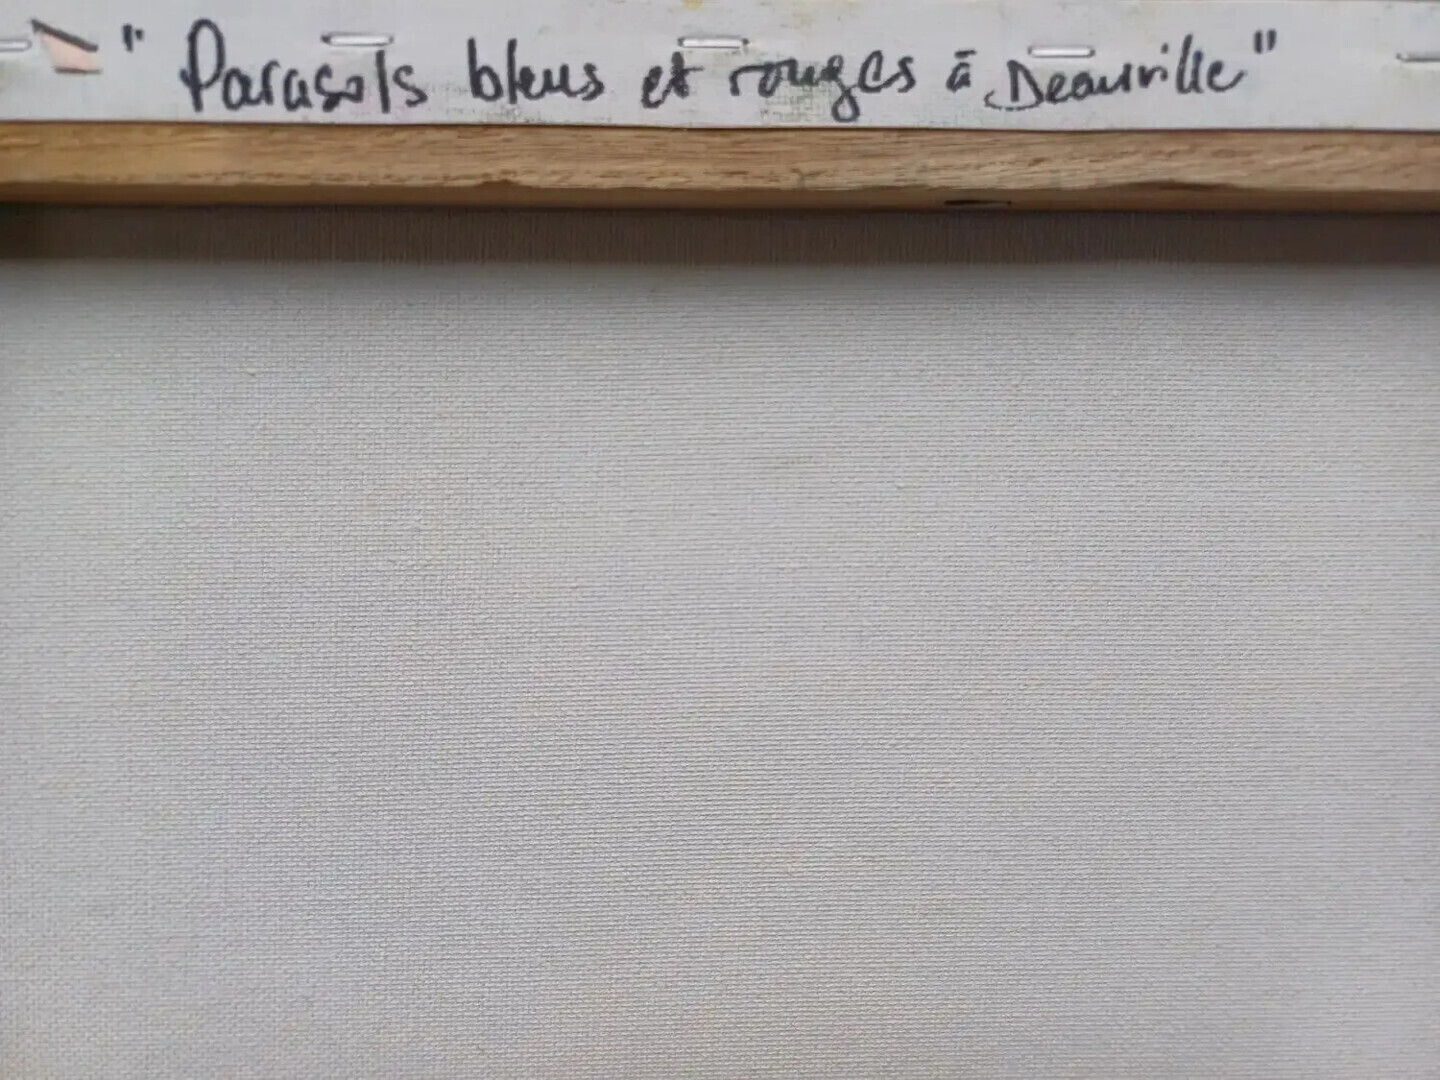 " Parasols bleus et rouges à Deauville "